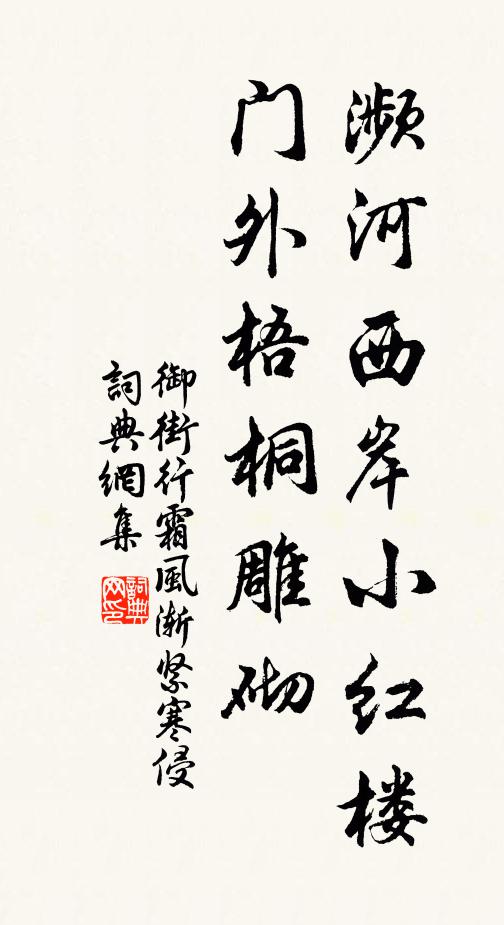 濒河西岸小红楼
门外梧桐雕砌
御街行霜風渐紧寒侵
詞典網集
詞典網印